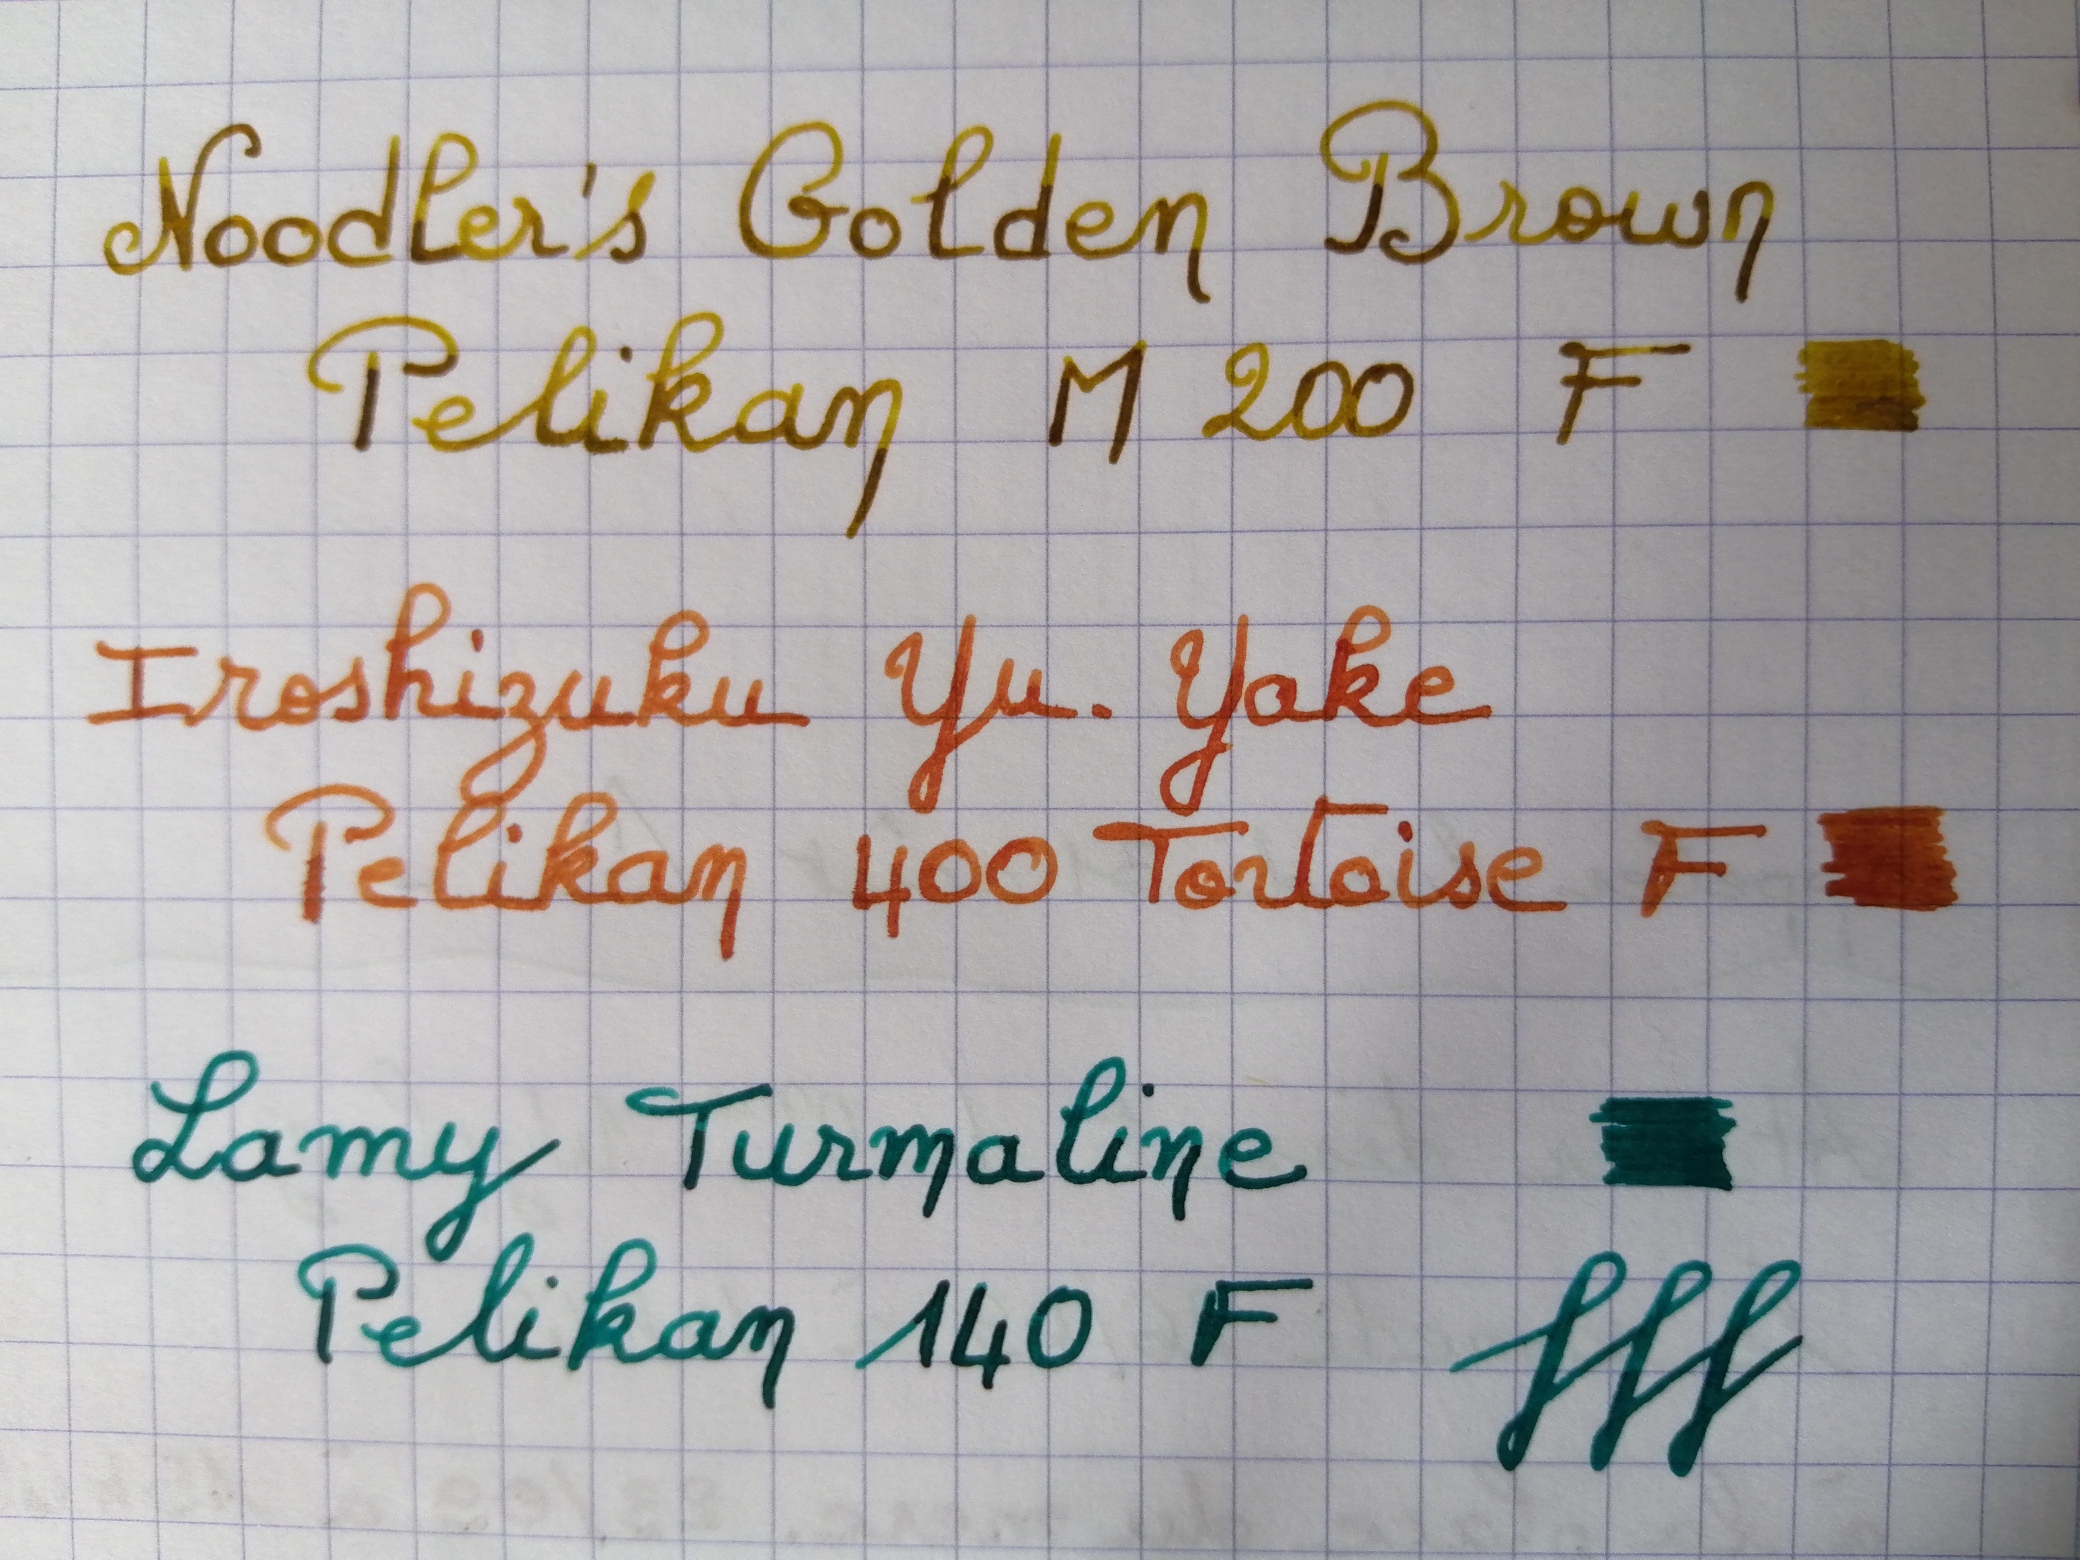 Noodler's Golden Brown
Pelikan M 200 F
Iroshizuku Yu. Yake
Pelikan 400 Tortoise F
Lamy Turmaline
Pelikan 140 F
fff